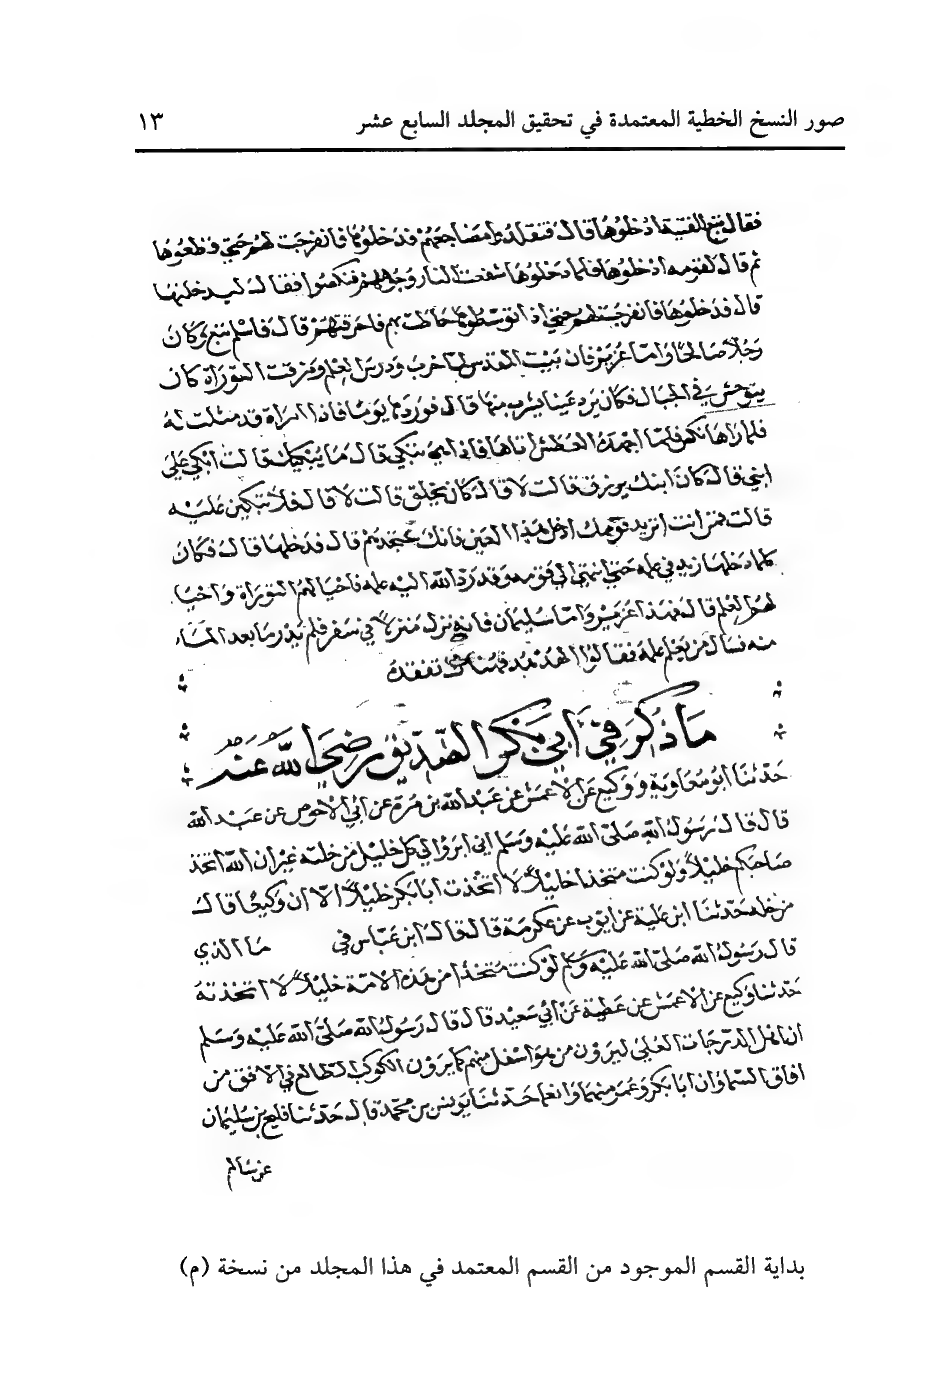 صور النسخ الخطية المعتمدة في تحقيق المجلد السابع عشر ١٣
فقال تبع الفتية ادخلوها قال فتقلدوا مصاحفهم فدخلوها فانفرجت لهم حتى قطعوها
ثم قال لقومه ادخلوها فلما دخلوها سفعت النار وجوههم فنكصوا فقال لتدخلنها
قال فدخلوها فانفرجت لهم حتى اذا توسطوها احاطت بهم فاحرقتهم قال فاسلم تبع وكان
رجلا صالحا واما عزير فان بيت المقدس لما خرب ودرس العلم ومزقت التوراة كان
يتوحش في الجبال فكان يرد عينا يشرب منها قال فوردها يوما فاذا امراة قد مثلت له
فلما راها نكص فلما اجهده العطش اتاها فاذا هي تبكي قال ما يبكيك قالت ابكي على
ابني قال كان ابنك يرزق قالت لا قال كان يخلق قالت لا قال فلا تبكين عليه
قالت فمن انت اتريد قومك ادخل هذا العين فانك ستجدهم قال فدخلها قال فكان
كلما دخلها زيد في علمه حتى انتهى الى قومه وقد رد الله اليه علمه فاحيا لهم التوراة واحيا
لهم العلم قال فهذا عزير واما سليمان فانه نزل منزلا في سفر فلم يدر ما بعد الماء
منه فسال من يعلم علمه فقالوا الهدهد فهناك تفقده
ما ذكر في ابي بكر الصديق رضي الله عنه
حدثنا ابو معاوية ووكيع عن الاعمش عن عبد الله بن مرة عن ابي الاحوص عن عبد الله
قال قال رسول الله صلى الله عليه وسلم اني ابرؤ الى كل خليل من خلته غير ان الله اتخذ
صاحبكم خليلا ولو كنت متخذا خليلا لا اتخذت ابا بكر خليلا الا ان وكيعا قال
من خله حدثنا ابن علية عن ايوب عن عكرمة قال قال ابن عباس في ما الذي
قال رسول الله صلى الله عليه وسلم لو كنت متخذا من هذه الامة خليلا لا اتخذته
حدثنا وكيع عن الاعمش عن عطية عن ابي سعيد قال قال رسول الله صلى الله عليه وسلم
ان اهل الدرجات العلى ليرون من هو اسفل منهم كما يرون الكوكب الطالع في الافق من
افاق السماء وان ابا بكر وعمر منهما وانعما حدثنا يونس بن محمد قال حدثنا فليح بن سليمان
عن سالم
بداية القسم الموجود من القسم المعتمد في هذا المجلد من نسخة (م)